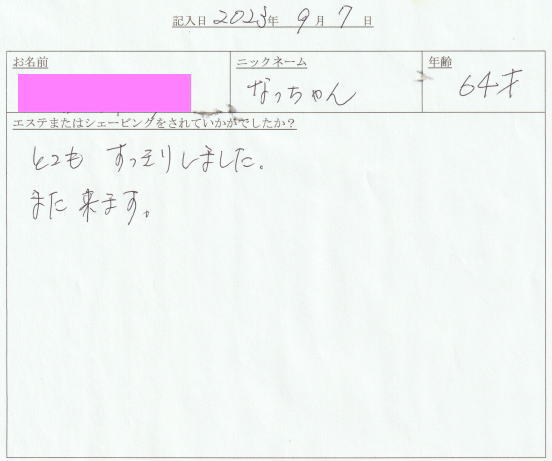 記入日 2023年 9月 7日
お名前 ニックネーム 年齢
なっちゃん 64才
エステまたはシェービングをされていかがでしたか？
とても すっきりしました。
また 来ます。